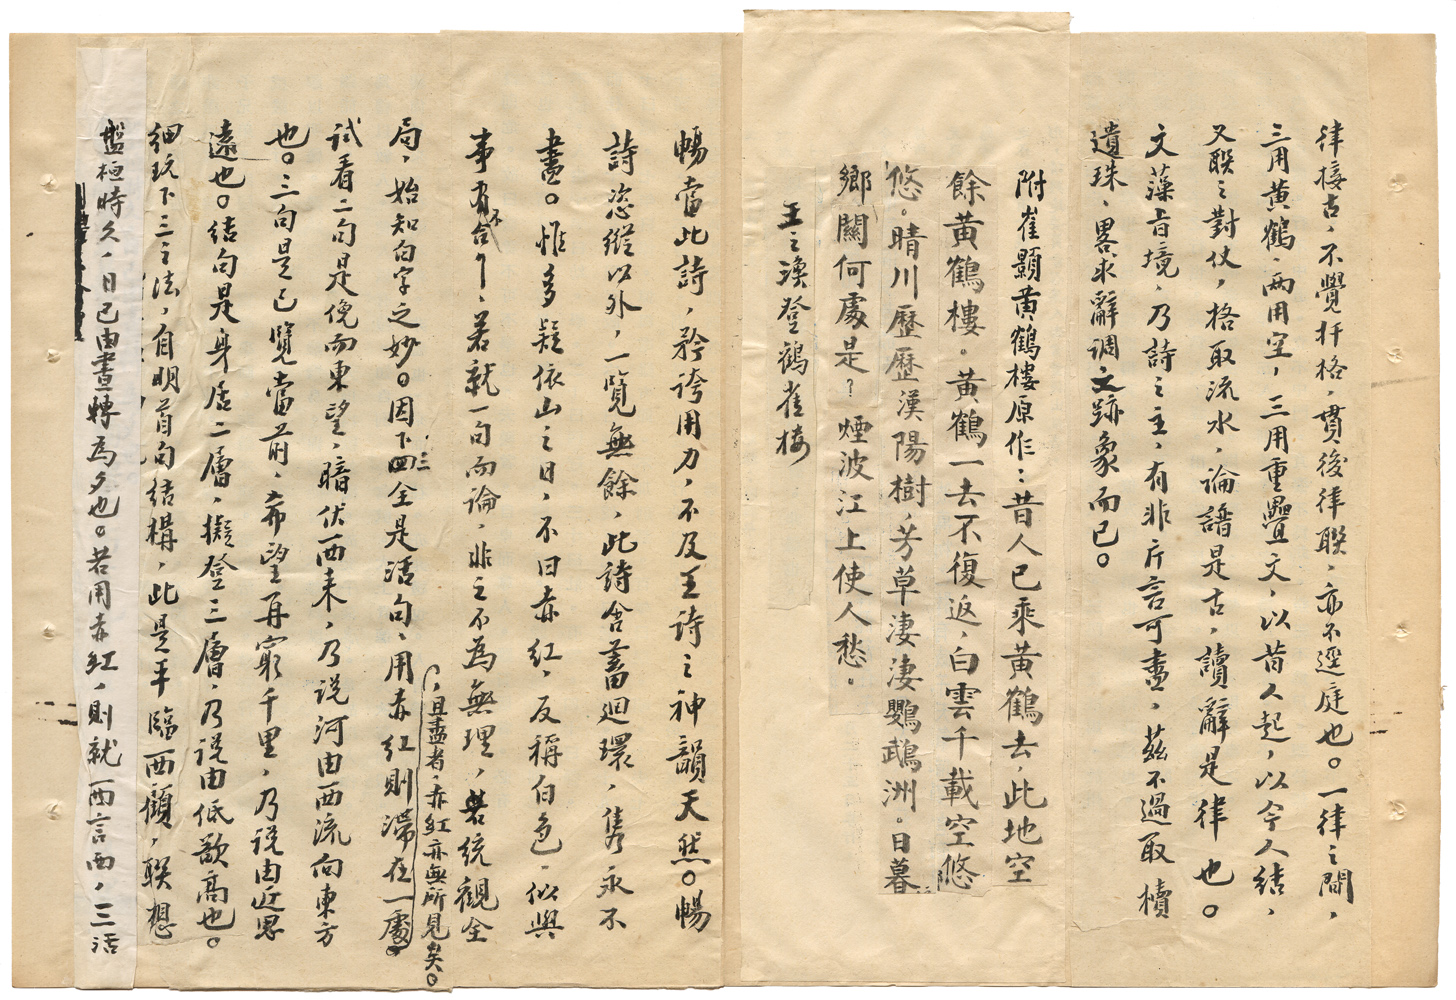 律接古，不覺扞格，貫後律聯，亦不逕庭也。一律之間，
三用黃鶴，兩用空，三用重疊文，以昔人起，以今人結，
又聯之對仗，格取流水，論譜是古，讀辭是律也。
文藻旨境，乃詩之主，有非片言可盡，茲不過取櫝
遺珠，畧求辭調之跡象而已。
附崔顥黃鶴樓原作：昔人已乘黃鶴去，此地空
餘黃鶴樓。黃鶴一去不復返，白雲千載空悠
悠。晴川歷歷漢陽樹，芳草淒淒鸚鵡洲。日暮
鄉關何處是？煙波江上使人愁。
王之渙登鶴雀樓
暢當此詩，矜誇用力，不及王詩之神韻天然。暢
詩恣縱以外，一覽無餘，此詩含蓄迴環，雋永不
盡。惟多疑依山之日，不曰赤紅，反稱白色，似與
事有不合，若就一句而論，非之不為無理，若統觀全
局，始知白字之妙。因下三全是活句，用赤紅則滯在一處，
且盡者，赤紅亦無所見矣。
試看二句是俛而東望，暗伏西来，乃说河由西流向東方
也。三句是已覽當前，希望再窮千里，乃说由近思
遠也。结句是身居二層，擬登三層，乃说由低歆高也。
细玩下三之法，自明首句结構，此是平臨西顧，联想
盤桓時久，日已由晝轉為夕也。若用赤紅，則就西言西，三活